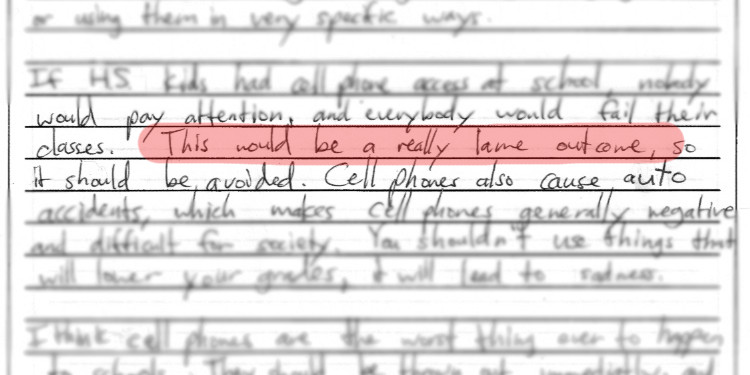 or using them in very specific ways.
If H.S. kids had cell phone access at school, nobody
would pay attention, and everybody would fail their
classes. This would be a really lame outcome, so
it should be avoided. Cell phones also cause auto
accidents, which makes cell phones generally negative
and difficult for society. You shouldn't use things that
will lower your grades, it will lead to sadness.
I think cell phones are the worst thing ever to happen
to schools. They should be thrown out immediately, and